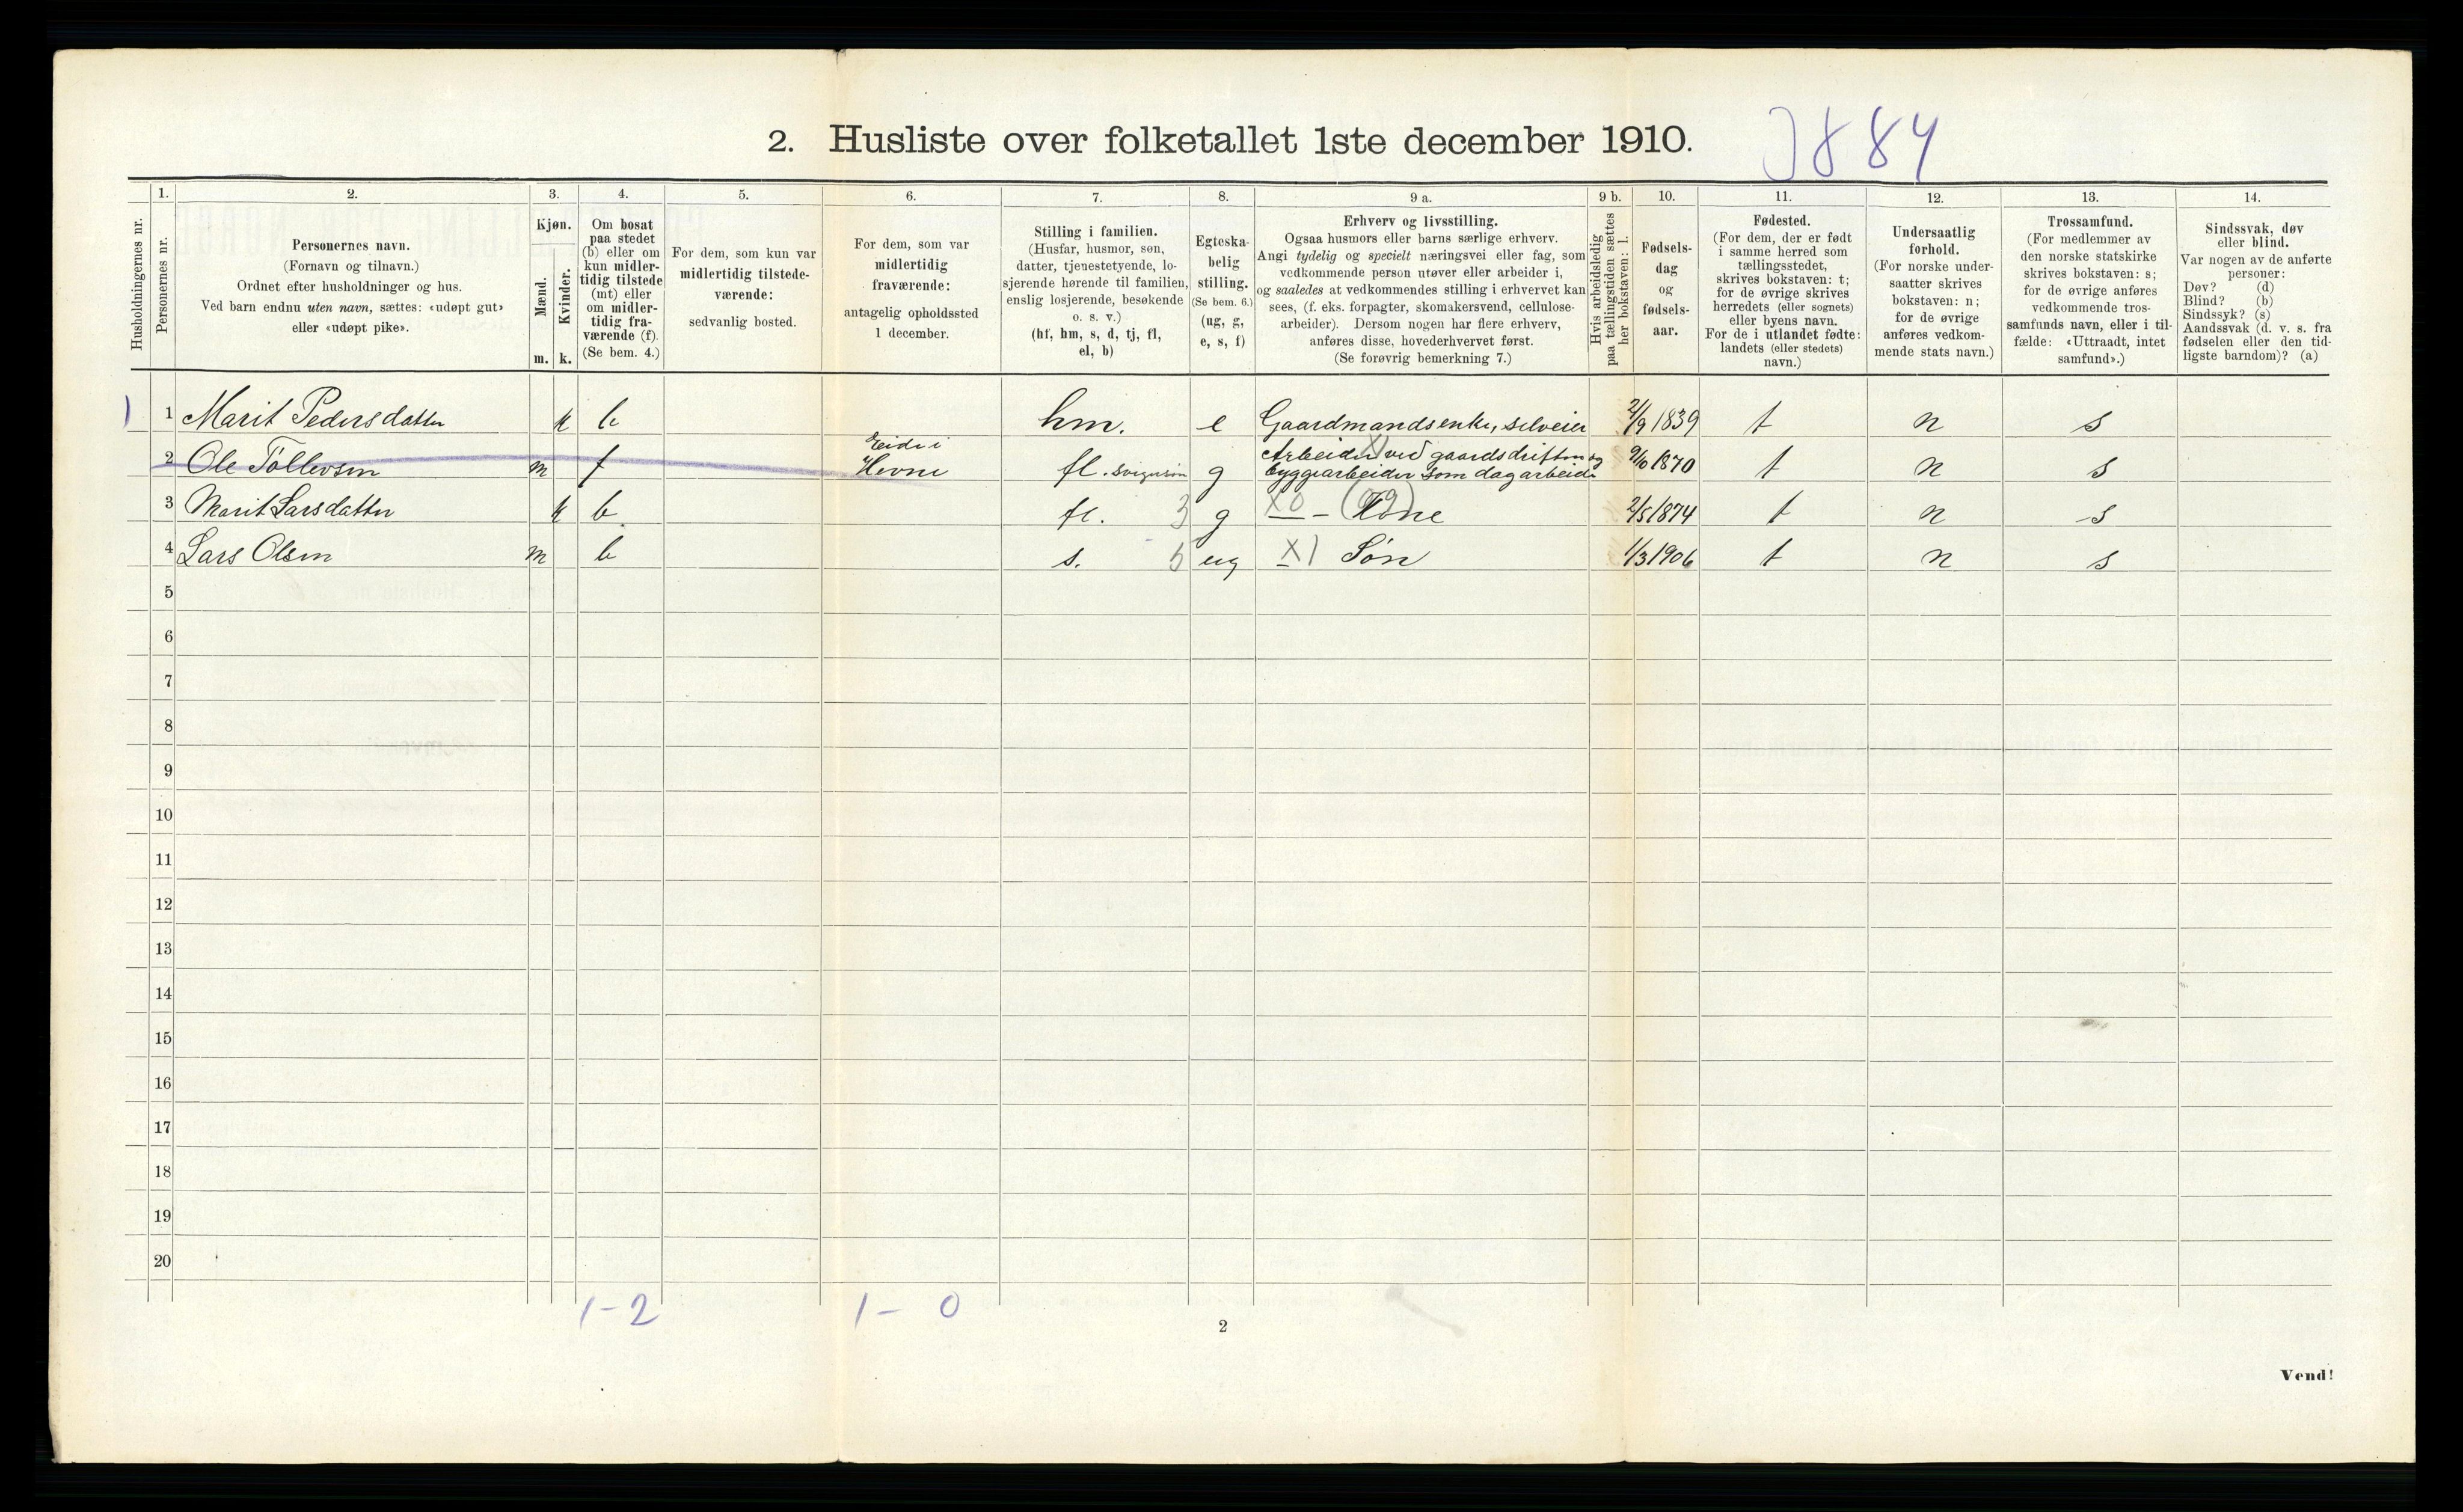 2. Husliste over folketallet 1ste december 1910.
3884
1. 2. 3. 4. 5. 6. 7. 8. 9 a. 9 b. 10. 11. 12. 13. 14.
Husholdningernes nr.
Personernes nr.
Personernes navn.
(Fornavn og tilnavn.)
Ordnet efter husholdninger og hus.
Ved barn endnu uten navn, sættes: «udøpt gut»
eller «udøpt pike».
Kjøn.
Mænd.
Kvinder.
m. k.
Om bosat
paa stedet
(b) eller om
kun midler-
tidig tilstede
(mt) eller
om midler-
tidig fra-
værende (f).
(Se bem. 4.)
For dem, som kun var
midlertidig tilstede-
værende:
sedvanlig bosted.
For dem, som var
midlertidig
fraværende:
antagelig opholdssted
1 december.
Stilling i familien.
(Husfar, husmor, søn,
datter, tjenestetyende, lo-
sjerende hørende til familien,
enslig losjerende, besøkende
o. s. v.)
(hf, hm, s, d, tj, fl,
el, b)
Egteska-
belig
stilling.
(Se bem. 6.)
(ug, g,
e, s, f)
Erhverv og livsstilling.
Ogsaa husmors eller barns særlige erhverv.
Angi tydelig og specielt næringsvei eller fag, som
vedkommende person utøver eller arbeider i,
og saaledes at vedkommendes stilling i erhvervet kan
sees, (f. eks. forpagter, skomakersvend, cellulose-
arbeider). Dersom nogen har flere erhverv,
anføres disse, hovederhvervet først.
(Se forøvrig bemerkning 7.)
Hvis arbeidsledig
paa tællingstiden sættes
her bokstaven: l.
Fødsels-
dag
og
fødsels-
aar.
Fødested.
(For dem, der er født
i samme herred som
tællingsstedet,
skrives bokstaven: t;
for de øvrige skrives
herredets (eller sognets)
eller byens navn.
For de i utlandet fødte:
landets (eller stedets)
navn.)
Undersaatlig
forhold.
(For norske under-
saatter skrives
bokstaven: n;
for de øvrige
anføres vedkom-
mende stats navn.)
Trossamfund.
(For medlemmer av
den norske statskirke
skrives bokstaven: s;
for de øvrige anføres
vedkommende tros-
samfunds navn, eller i til-
fælde: «Uttraadt, intet
samfund».)
Sindssvak, døv
eller blind.
Var nogen av de anførte
personer:
Døv? (d)
Blind? (b)
Sindssyk? (s)
Aandssvak (d. v. s. fra
fødselen eller den tid-
ligste barndom)? (a)
1 1 Marit Pedersdatter k b hm. e Gaardmandsenke, selveier 2/9 1839 t n s
2 Ole Tollevsen m f Eide i Hevne fl. svigersøn g Arbeider ved gaardsdriften og byggearbeider som dagarbeider 9/10 1870 t n s
3 Marit Larsdatter k b fl. 3 g X0 — Kone 2/5 1874 t n s
4 Lars Olsen m b s. 5 ug X1 Søn 1/3 1906 t n s
5
6
7
8
9
10
11
12
13
14
15
16
17
18
19
20
1-2 1- 0
2
Vend!